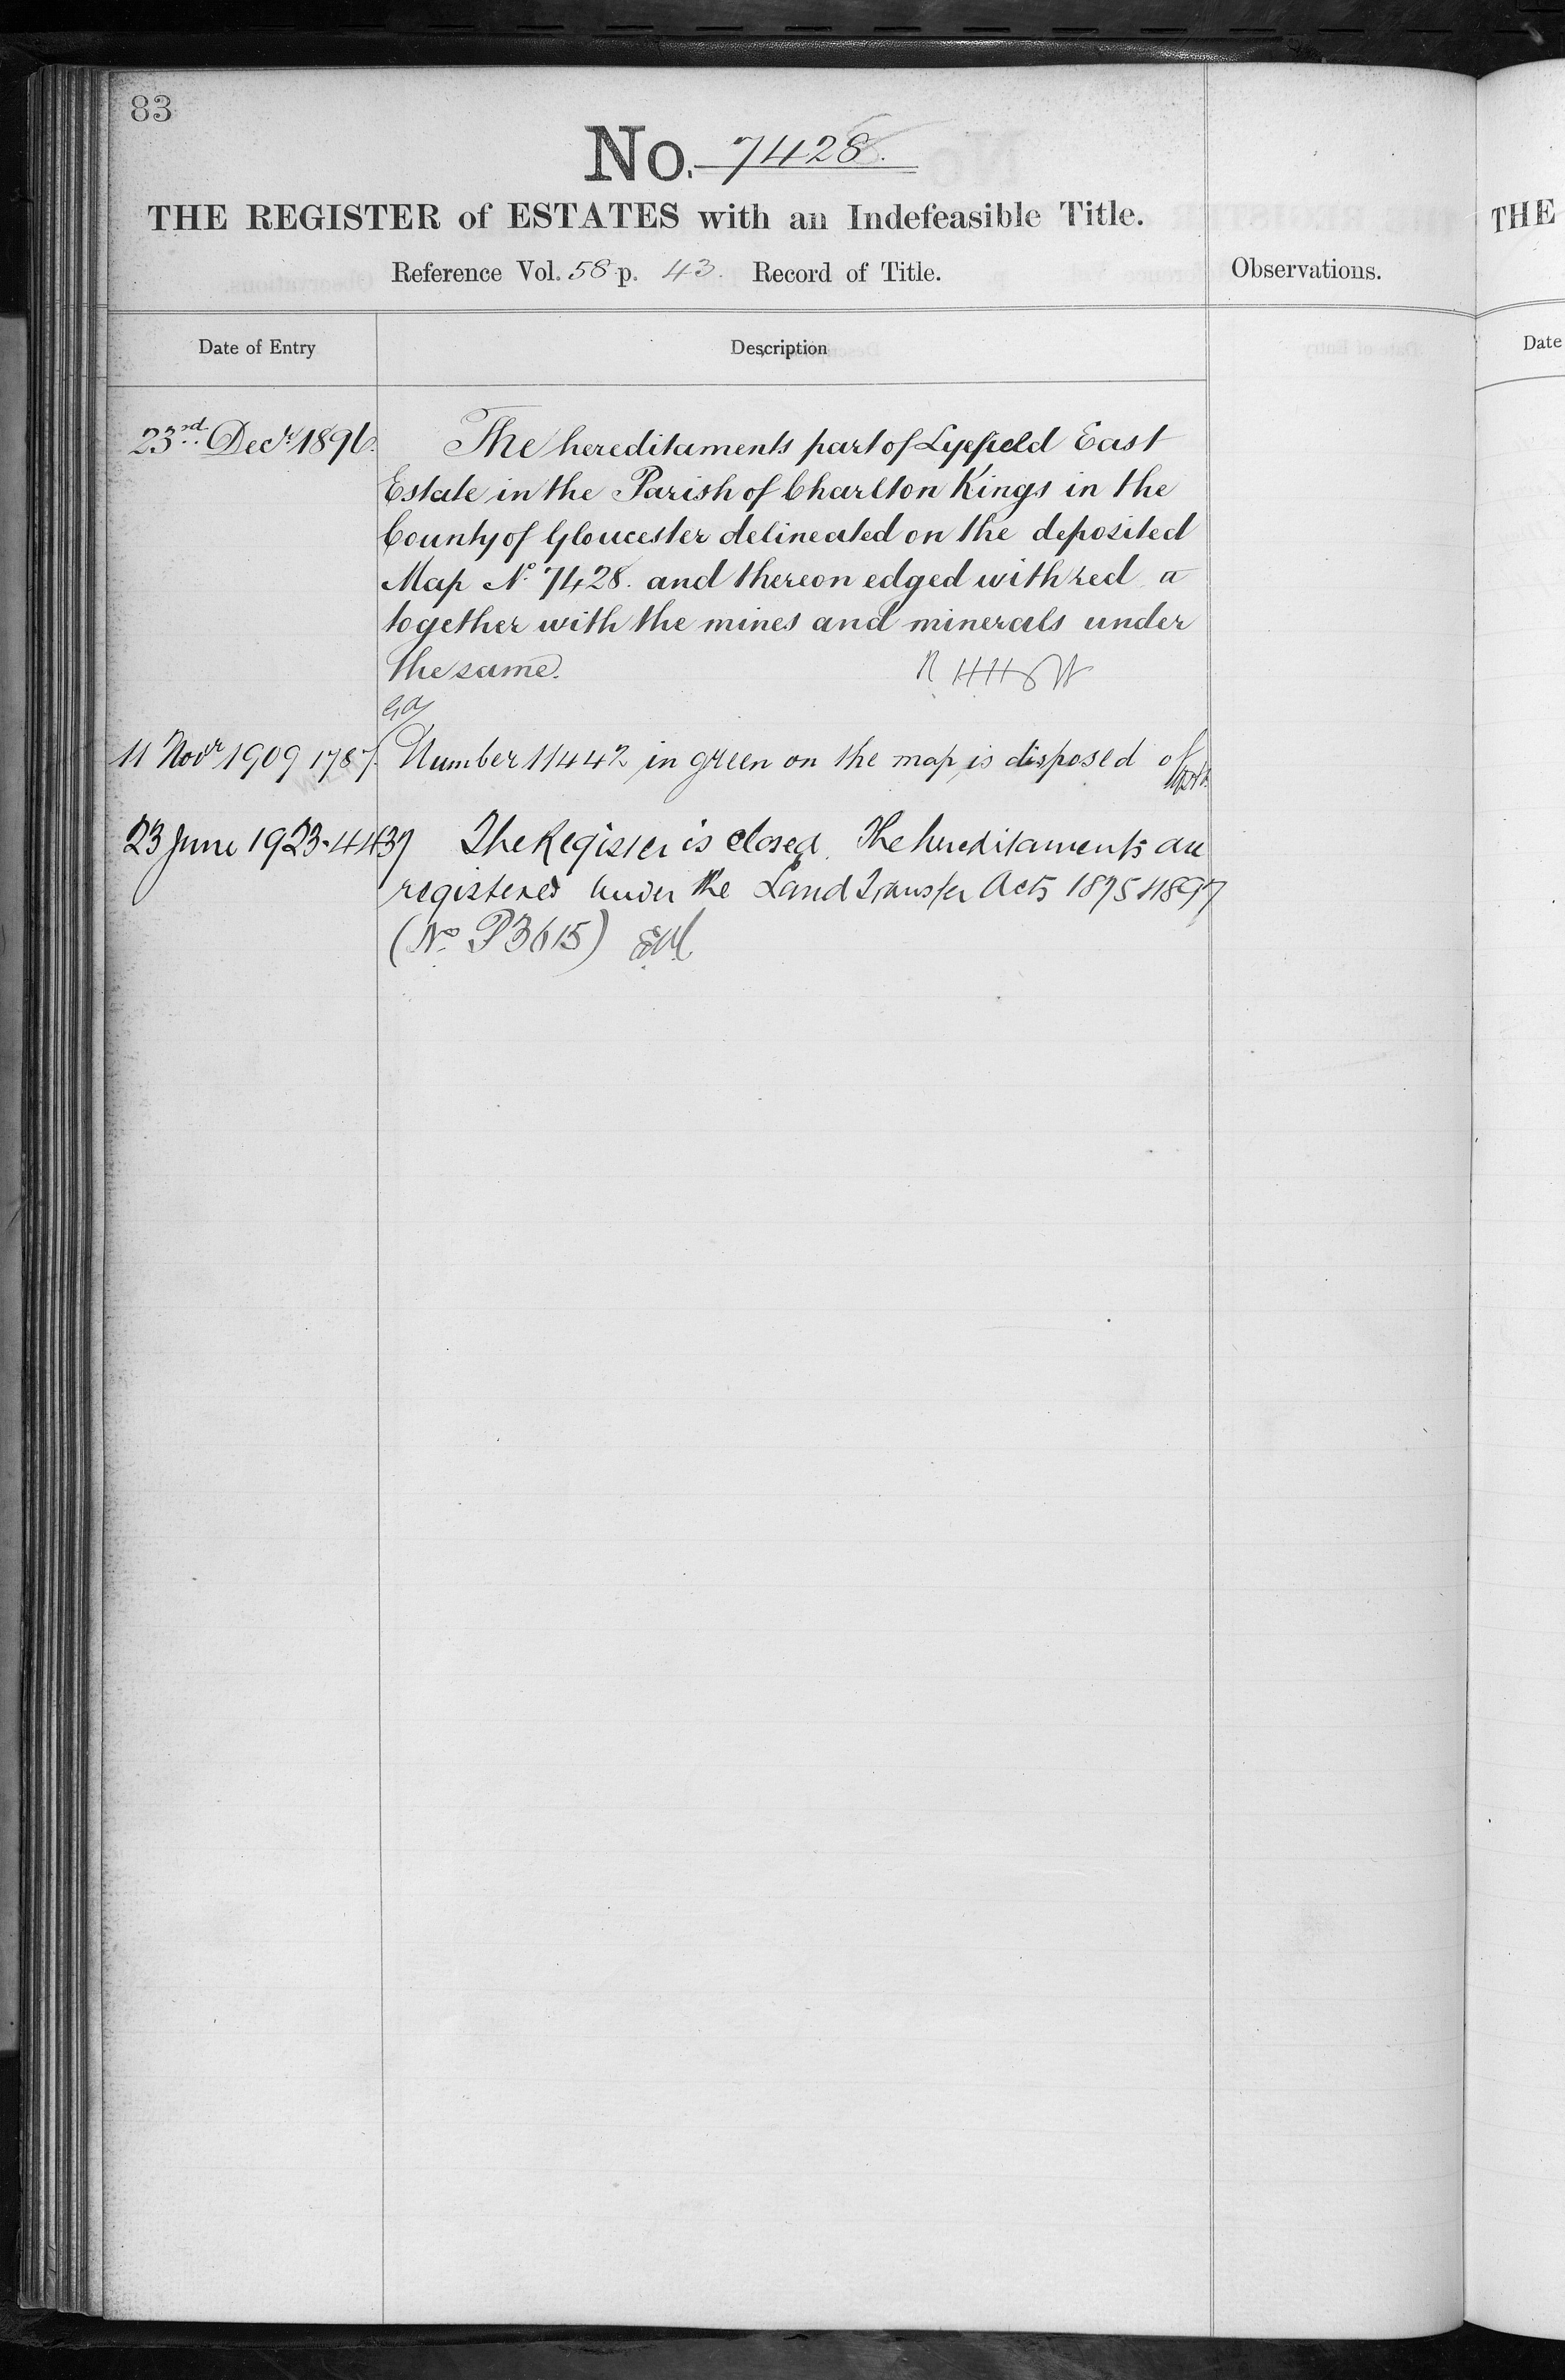 83
No. 7428.
THE REGISTER of ESTATES with an Indefeasible Title.
Reference Vol. 58 p. 43. Record of Title.
Observations.
Date of Entry
Description
23rd. Decr. 1896.
The hereditaments part of Lyefield East
Estate in the Parish of Charlton Kings in the
County of Gloucester delineated on the deposited
Map No. 7428. and thereon edged with red
together with the mines and minerals under
the same.
11 Novr 1909 1787
Number 11442 in green on the map is disposed of
23 June 1923. 4437
The Register is closed. The hereditaments are
registered under the Land Transfer Acts 1875 & 1897
(No. P3615)
THE
Date